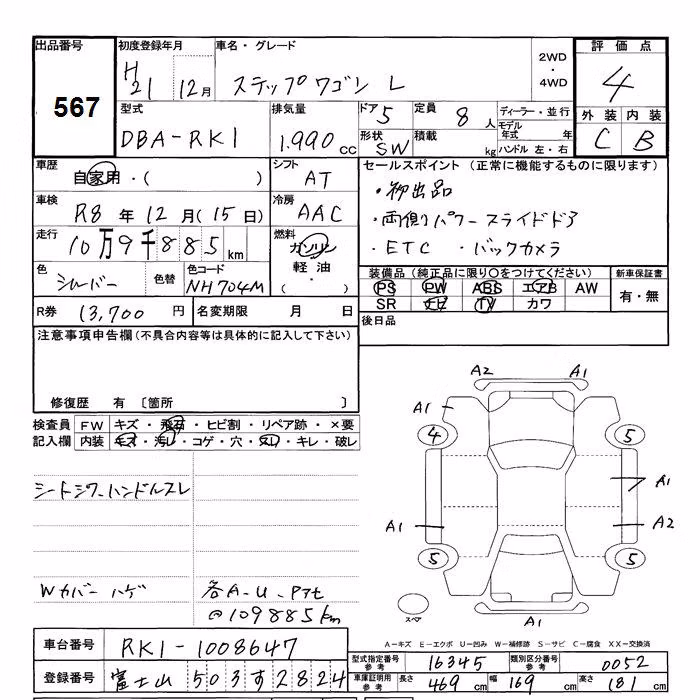 出品番号 初度登録年月 車名・グレード 評価点
567 H21 12月 ステップワゴン L 2WD・4WD 4
型式 排気量 ドア 5 定員 8人 ディーラー・並行 外装 内装
DBA-RK1 1.990cc 形状 SW 積載 kg モデル年式 年 ハンドル 左・右 C B
車歴 自家用・( ) シフト AT セールスポイント (正常に機能するものに限ります)
車検 R8年12月(15日) 冷房 AAC ・初出品
走行 10万9千885km 燃料 ガソリン・軽油・( ) ・両側パワースライドドア
・ETC ・バックカメラ
色 シルバー 色替 色コード NH704M 装備品(純正品に限り〇をつけてください) 新車保証書
PS PW ABS エアB AW 有・無
SR ナビ TV カワ
R券 13,700円 名変期限 月 日 後日品
注意事項申告欄(不具合内容等は具体的に記入して下さい)
修復歴 有 〔箇所 〕
検査員 FW キズ・飛石・ヒビ割・リペア跡・×要
記入欄 内装 キズ・汚レ・コゲ・穴・スレ・キレ・破レ
シートシワ ハンドルスレ
Wカバー ハゲ 各A-U
@109885km
A2 A1
A1
4 5
A1
A1 A2
5 5
スペア A1
A-キズ E-エクボ U-凹み W-補修跡 S-サビ C-腐食 XX-交換済
車台番号 RK1-1008647
登録番号 富士山 503す2824
型式指定番号 参考 16345 類別区分番号 参考 0052
車庫証明用 参考 長さ 469cm 幅 169cm 高さ 181cm